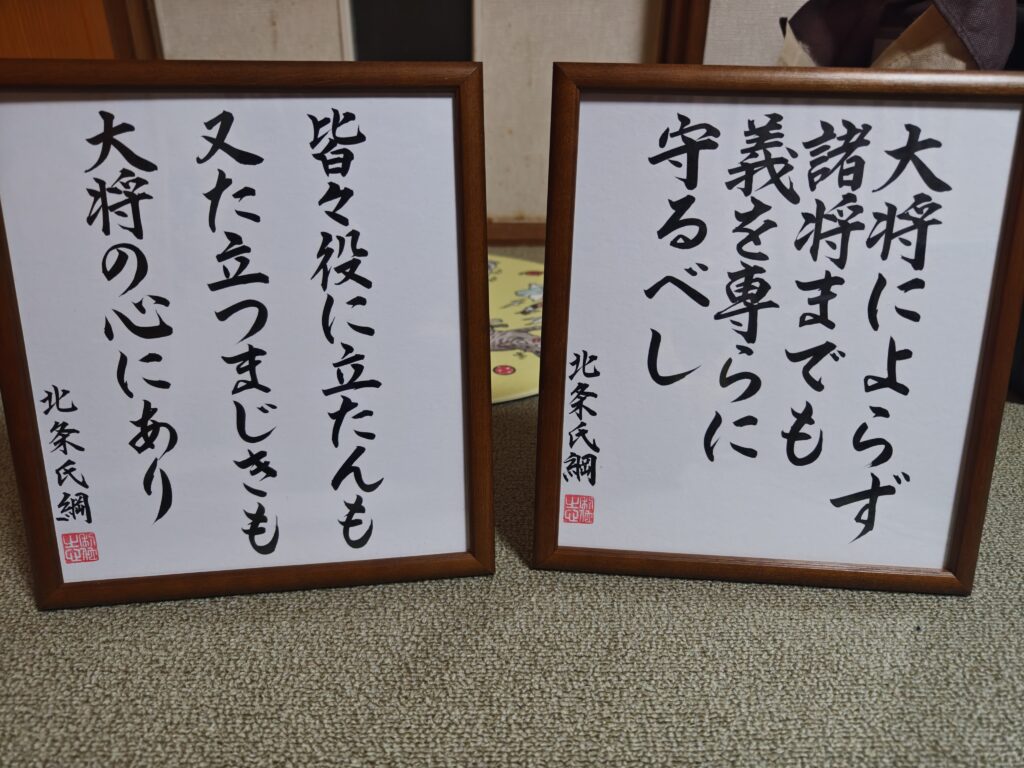 大将によらず
諸将までも
義を専らに
守るべし
北条氏綱
皆々役に立たんも
又た立つまじきも
大将の心にあり
北条氏綱